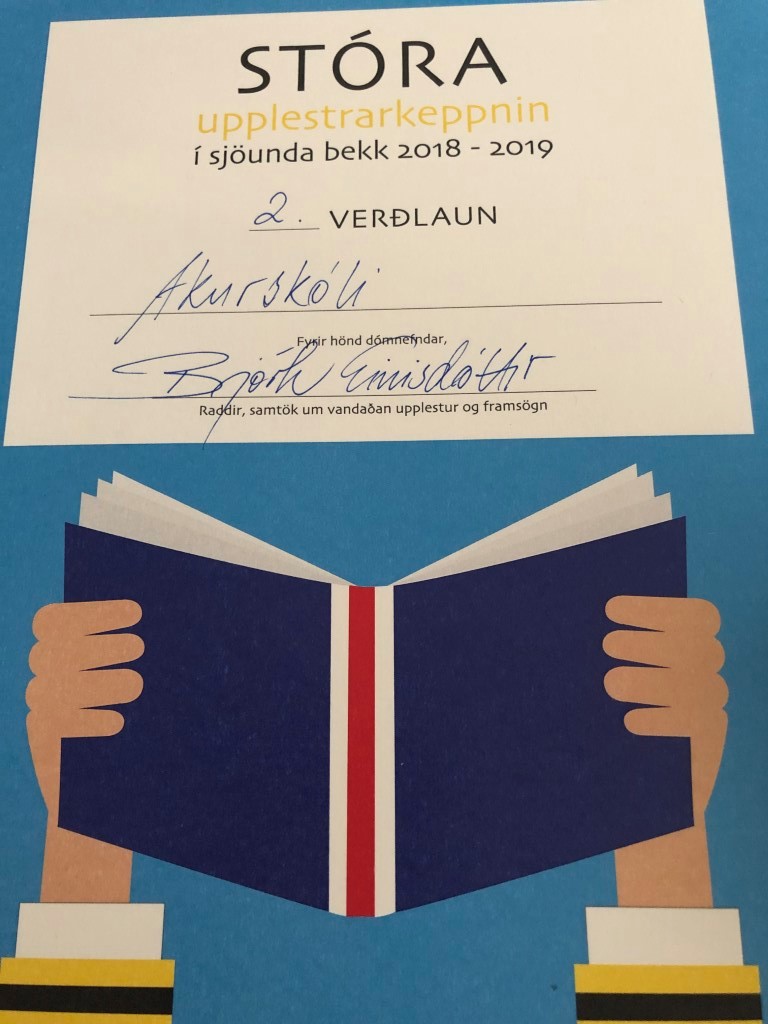 STÓRA
upplestrarkeppnin
í sjöunda bekk 2018 - 2019
2. VERÐLAUN
Akurskóli
Fyrir hönd dómnefndar,
Björk Einisdóttir
Raddir, samtök um vandaðan upplestur og framsögn